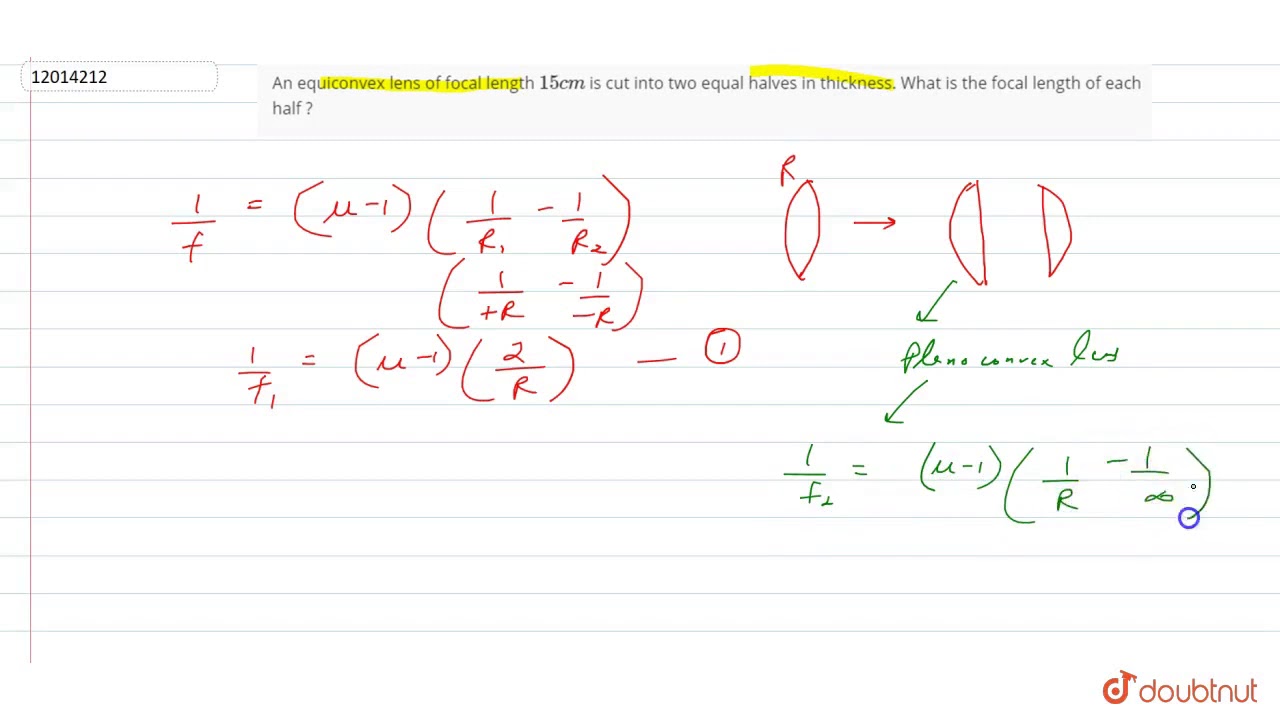 12014212
An equiconvex lens of focal length 15cm is cut into two equal halves in thickness. What is the focal length of each
half ?
R
1/f = (μ-1) (1/R₁ - 1/R₂)
(1/+R - 1/-R)
1/f₁ = (μ-1) (2/R) — ①
Plano convex lens
1/f₂ = (μ-1) (1/R - 1/∞)
doubtnut